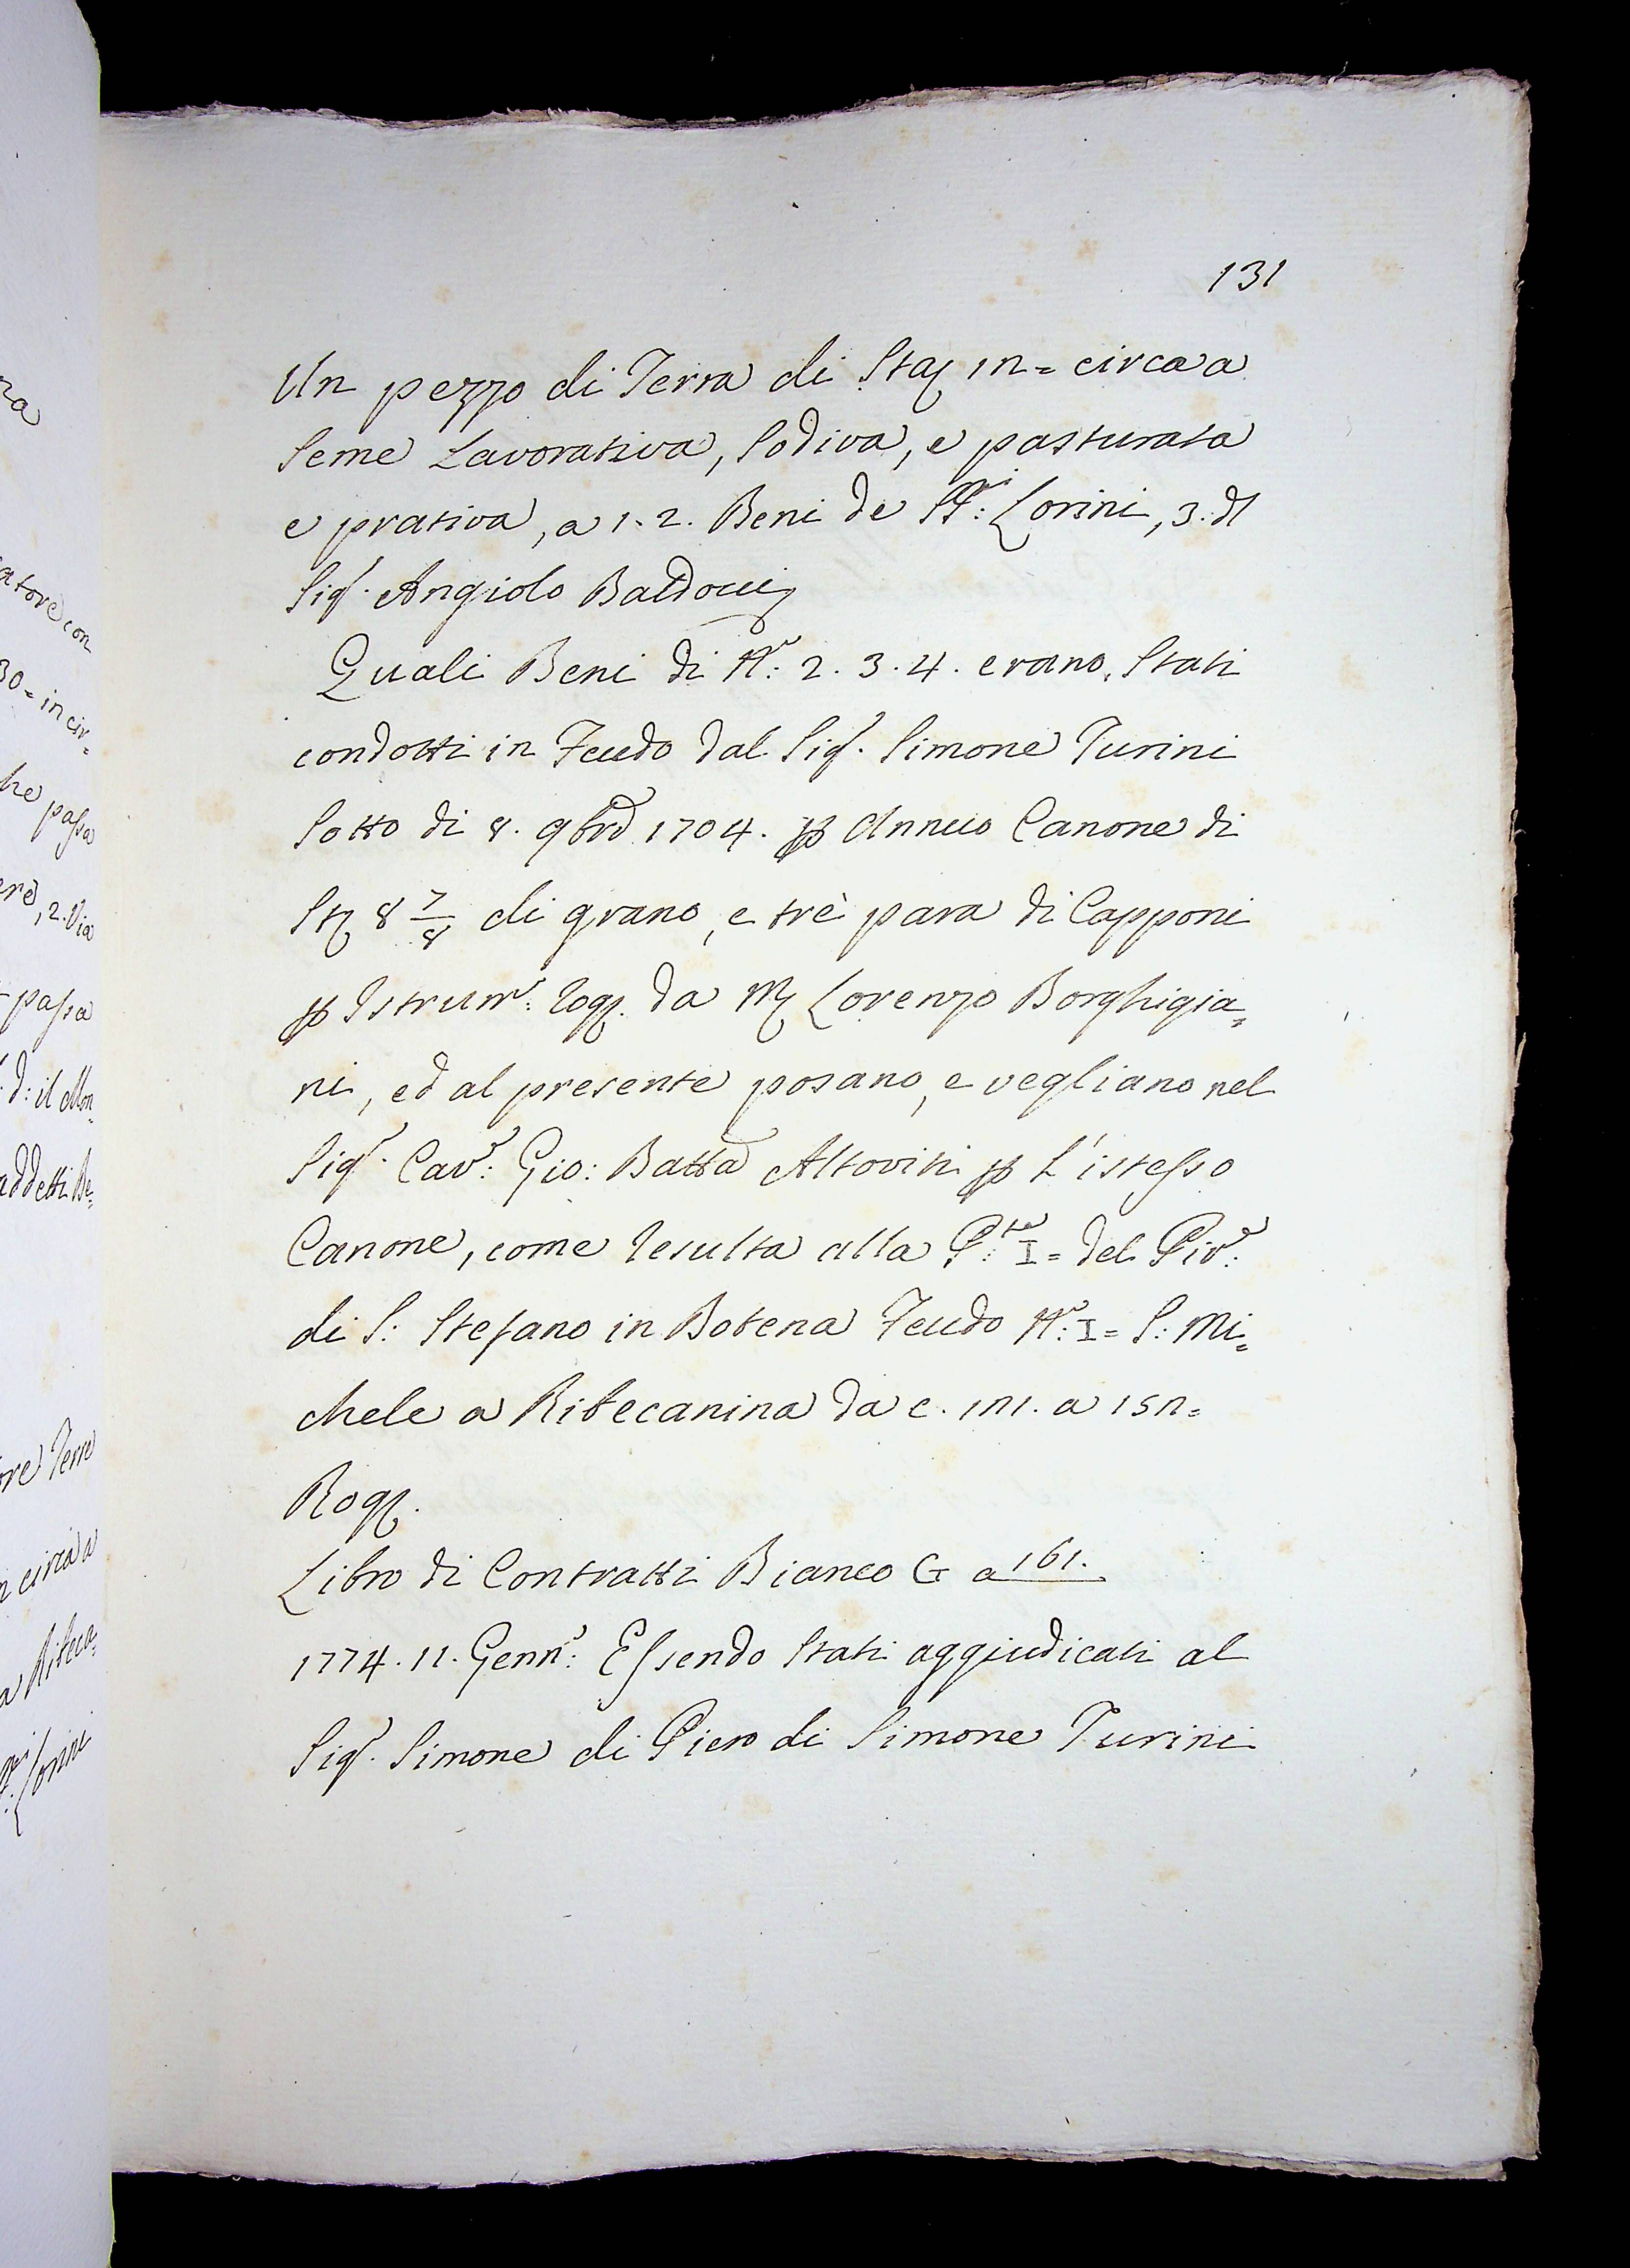 131
Un pezzo di Terra di Sta: 12= circa a
Seme Lavorativa, Sodiva, e pasturata
e prativa, a 1. 2. Beni de SSri: Lorini, 3. dl
Sigr. Angiolo Baldovi
Quali Beni di No: 2. 3. 4. erano Stati
condotti in Feudo dal Sigr. Simone Turini
Sotto di 8. 9bre 1704. p Annuo Canone di
St: 8 7/8 di grano, e trè para di Capponi
p Istrumo: Rog. da Mr Lorenzo Borghigia=
ni, ed al presente posano, e vegliano nel
Sigr. Cavr: Gio: Batta Altoviti p L'istesso
Canone, come resulta alla Pte: I= del Pive:
di S: Stefano in Botena Feudo No: I= S: Mi=
chele a Ribecanina da c. 121. a 152=
Rog.
Libro di Contratti Bianco G a 161.
1774. 11. Genno: Essendo Stati aggiudicati al
Sigr. Simone di Piero di Simone Turini
na
atore con
30= in cir=
he passa
ere, 2. Via
passa
d: il Mon=
addetti Be=
ore Terre
circa a
a Ribeca=
Lorini